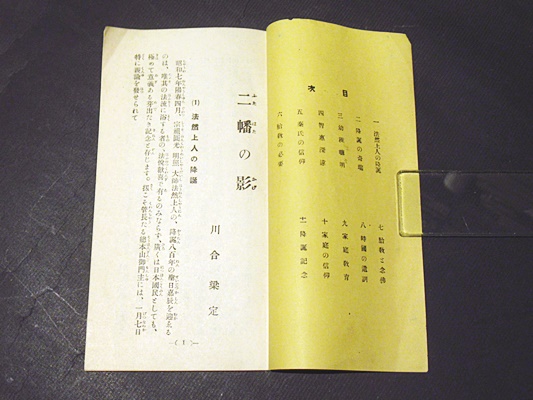 目次
一 法然上人の降誕
二 降誕の奇瑞
三 幼稚聰明
四 智惠深遠
五 秦氏の信仰
六 胎教の必要
七 胎教と念佛
八 時國の遺訓
九 家庭敎育
十 家庭の信仰
十一 降誕記念
二幡の影
ふたはたのかげ
川合梁定
(1) 法然上人の降誕
昭和七年陽春四月、宗祖圓光明照大師法然上人の、降誕八百年の聖日嘉辰を迎える
のは、唯其の法流に浴する者の、法悅歡喜で有るのみならず、廣くは日本國民としても、
極めて意義ある芽出たき記念と存じます。扨こそ管長たる總本山御門主には、一月七日
特に親諭を發せられて
—(1)—